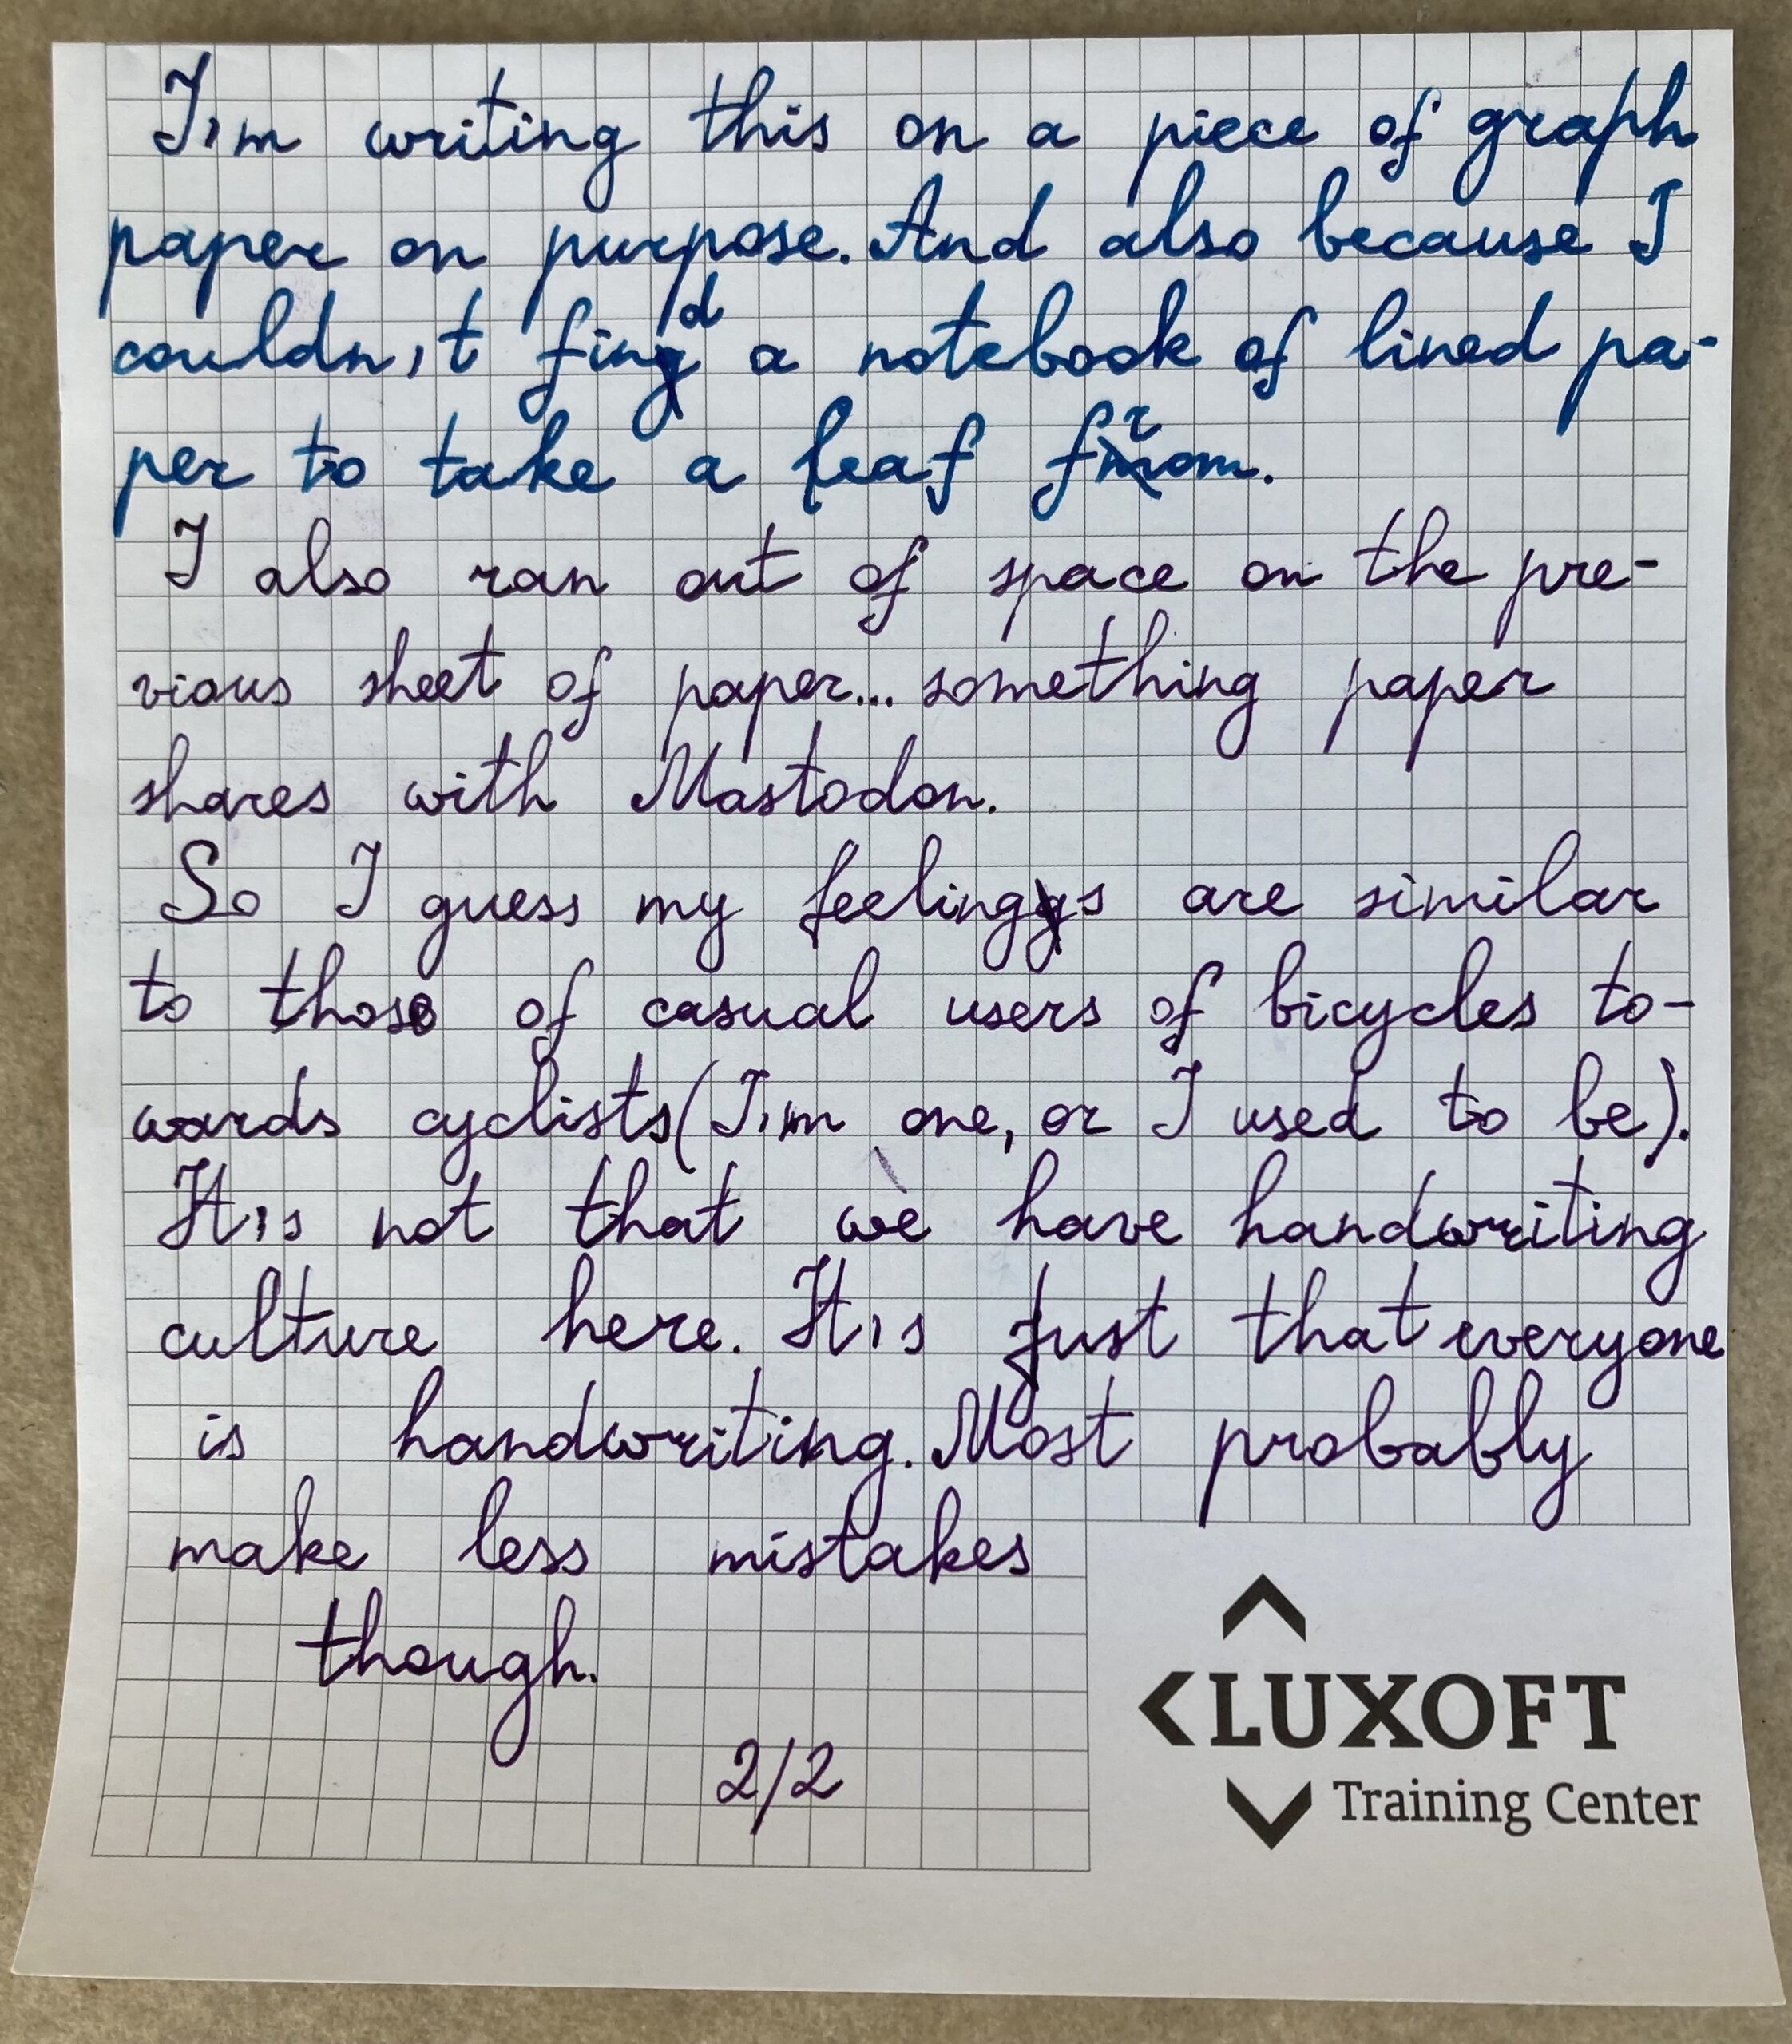 I'm writing this on a piece of graph
paper on purpose. And also because I
couldn't find a notebook of lined pa-
per to take a leaf from.
I also ran out of space on the pre-
vious sheet of paper... something paper
shares with Mastodon.
So I guess my feelings are similar
to those of casual users of bicycles to-
wards cyclists (I'm one, or I used to be).
It's not that we have handwriting
culture here. It's just that everyone
is handwriting. Most probably
make less mistakes
though.
2/2
LUXOFT
Training Center